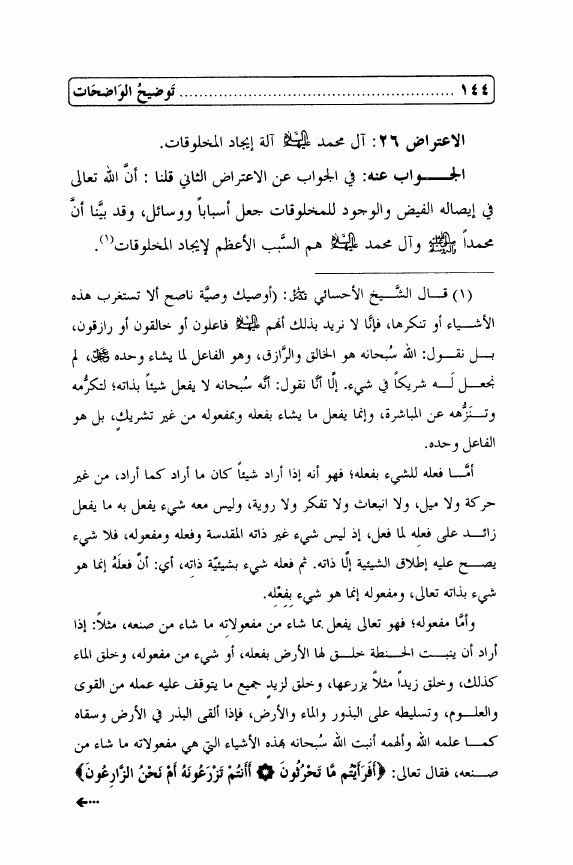 ١٤٤ ........................................................ تَوضيحُ الوَاضحَات
الاعتراض ٢٦: آل محمد عليهم السلام آلة إيجاد المخلوقات.
الجـــواب عنه: في الجواب عن الاعتراض الثاني قلنا : أنَّ الله تعالى
في إيصاله الفيض والوجود للمخلوقات جعل أسباباً ووسائل، وقد بيَّنا أنَّ
محمداً صلى الله عليه وآله وآل محمد عليهم السلام هم السَّبب الأعظم لإيجاد المخلوقات(١).
(١) قـــال الشَّـيخ الأحسائي قدس سره: (أوصيك وصيَّة ناصح ألا تستغرب هذه
الأشـياء أو تنكرها، فإنَّا لا نريد بذلك أنهم عليهم السلام فاعلون أو خالقون أو رازقون،
بـــل نقـــول: الله سُبحانه هو الخالق والرَّازق، وهو الفاعل لما يشاء وحده عز وجل، لم
نجعـــل لَـــه شريكاً في شيء. إلَّا أنَّا نقول: أنَّه سُبحانه لا يفعل شيئاً بذاته؛ لتكرُّمه
وتـــنَزُّهه عن المباشرة، وإنما يفعل ما يشاء بفعله وبمفعوله من غير تشريكٍ، بل هو
الفاعل وحده.
أمَّـــا فعله للشيء بفعله؛ فهو أنه إذا أراد شيئاً كان ما أراد كما أراد، من غير
حركة ولا ميل، ولا انبعاث ولا تفكر ولا روية، وليس معه شيء يفعل به ما يفعل
زائـــد على فعلِه لما فعل، إذ ليس شيء غير ذاته المقدسة وفعله ومفعوله، فلا شيء
يصـــح عليه إطلاق الشيئية إلَّا ذاته. ثم فعله شيء بشيئيّة ذاتِه، أي: أنّ فعلَهُ إنما هو
شيء بذاته تعالى، ومفعوله إنما هو شيء بِفِعْلِه.
وأمَّا مفعوله؛ فهو تعالى يفعل بما شاء من مفعولاتِه ما شاء من صنعه، مثلاً: إذا
أراد أن ينبـــت الحـــنطة خلـــق لها الأرض بفعله، أو شيء من مفعوله، وخلق الماء
كذلك، وخلق زيداً مثلاً يزرعها، وخلق لزيدٍ جميع ما يتوقف عليه عمله من القوى
والعلـــوم، وتسليطه على البذور والماء والأرض، فإذا ألقى البذر في الأرض وسقاه
كمـــا علمه الله وألهمه أنبت الله سُبحانه بهذه الأشياء التي هي مفعولاته ما شاء من
صـــنعه، فقال تعالى: ﴿أَفَرَأَيْتُم مَّا تَحْرُثُونَ ۞ أَأَنتُمْ تَزْرَعُونَهُ أَمْ نَحْنُ الزَّارِعُونَ﴾
←...